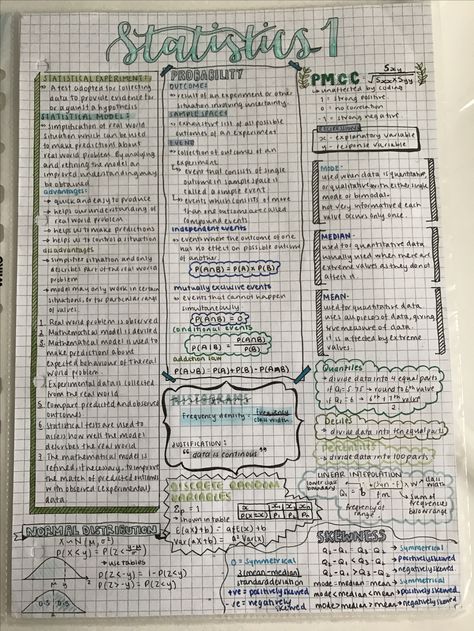 Statistics 1
STATISTICAL EXPERIMENT:
→ A test adopted for collecting
data to provide evidence for
or against a hypothesis
STATISTICAL MODEL:
→ simplification of real world
situation which can be used
to make predictions about
real world problem. By analysing
and refining the model an
improved understanding may
be obtained
advantages:
→ quick and easy to produce
→ helps our understanding of
real world problem
→ helps us to make predictions
→ helps us to control a situation
disadvantages
→ simplifies situation and only
describes part of the real world
problem
→ model may only work in certain
situations, or for particular range
of values
1 Real world problem is observed
2 Mathematical model is devised
3 Mathematical model is used to
make predictions about
expected behaviour of the real
world problem
4 Experimental data is collected
from the real world
5 Compare predicted and observed
outcomes
6 Statistical tests are used to
assess how well the model
describes the real world
7 The mathematical model is
refined if necessary, to improve
the match of predicted outcomes
with observed (experimental)
data.
PROBABILITY
OUTCOME:
→ result of an experiment or other
situation involving uncertainty.
SAMPLE SPACE:
→ exhaustive list of all possible
outcomes of an experiment
EVENT
→ collection of outcomes of an
experiment
→ event that consists of single
outcome in sample space is
called a simple event
→ events which consists of more
than one outcome are called
compound events
independent events
→ events where the outcome of one
has no effect on possible outcome
of another
P(A∩B) = P(A) × P(B)
mutually exclusive events
→ events that cannot happen
simultaneously
P(A∩B) = 0
conditional events
P(A|B) = P(A∩B) / P(B)
addition law
P(A∪B) = P(A) + P(B) - P(A∩B)
HISTOGRAMS
Frequency density = frequency / class width
JUSTIFICATION:
"data is continuous"
DISCRETE RANDOM
VARIABLES
Σp = 1
→ shown in table
E(aX+b) = aE(X)+b
Var(aX+b) = a²Var(X)
PMCC
Sxy / √Sxx × Syy
→ unaffected by coding
1 = strong positive
0 = no correlation
-1 = strong negative
x - explanatory variable
y - response variable
MODE:
used when data is quantitative,
or qualitative with either single
mode or bimodal.
not very informative if each
value occurs only once.
MEDIAN -
used for quantitative data
usually used when there are
extreme values as they do not
affect it.
MEAN -
used for quantitative data
uses all pieces of data, giving
true measure of data
it is affected by extreme
values
Quantiles
→ divide data into 4 equal parts
Deciles
→ divide data into ten equal parts
Percentiles
→ divide data into 100 parts
LINEAR INTERPOLATION
lower class boundary
class width
sum of
frequencies
below range
frequency of
range
NORMAL DISTRIBUTION
→ use tables
0.5 0.5
0 = symmetrical
3(mean-median)
standard deviation
+ve = positively skewed
-ve = negatively
skewed
SKEWNESS
Q₂-Q₁ = Q₃-Q₂ → symmetrical
Q₂-Q₁ < Q₃-Q₂ → positively skewed
Q₂-Q₁ > Q₃-Q₂ → negatively skewed
mode = median = mean → symmetrical
mode < median < mean → positively skewed
mode > median > mean → negatively skewed